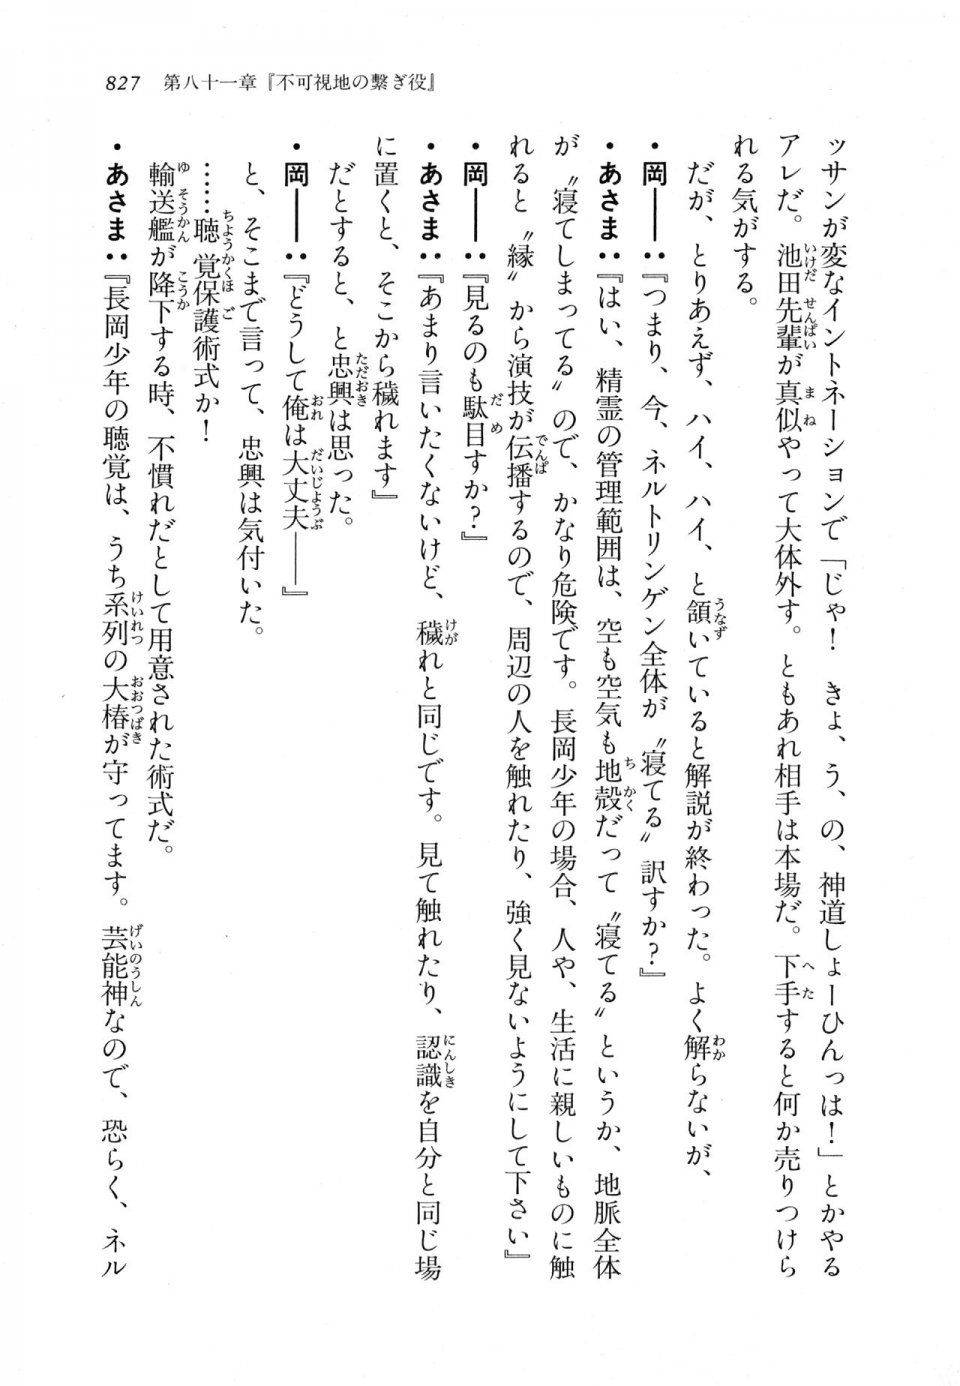 827　第八十一章『不可視地の繋ぎ役』
ッサンが変なイントネーションで「じゃ！　きょ、う、の、神道しょーひんっは！」とかやる
アレだ。池田先輩が真似やって大体外す。ともあれ相手は本場だ。下手すると何か売りつけら
れる気がする。
だが、とりあえず、ハイ、ハイ、と頷いていると解説が終わった。よく解らないが、
・岡――：『つまり、今、ネルトリンゲン全体が〝寝てる〟訳すか？』
・あさま：『はい、精霊の管理範囲は、空も空気も地殻だって〝寝てる〟というか、地脈全体
が〝寝てしまってる〟ので、かなり危険です。長岡少年の場合、人や、生活に親しいものに触
れると〝縁〟から演技が伝播するので、周辺の人を触れたり、強く見ないようにして下さい』
・岡――：『見るのも駄目すか？』
・あさま：『あまり言いたくないけど、穢れと同じです。見て触れたり、認識を自分と同じ場
に置くと、そこから穢れます』
だとすると、と忠興は思った。
・岡――：『どうして俺は大丈夫――』
と、そこまで言って、忠興は気付いた。
……聴覚保護術式か！
輸送艦が降下する時、不慣れだとして用意された術式だ。
・あさま：『長岡少年の聴覚は、うち系列の大椿が守ってます。芸能神なので、恐らく、ネル